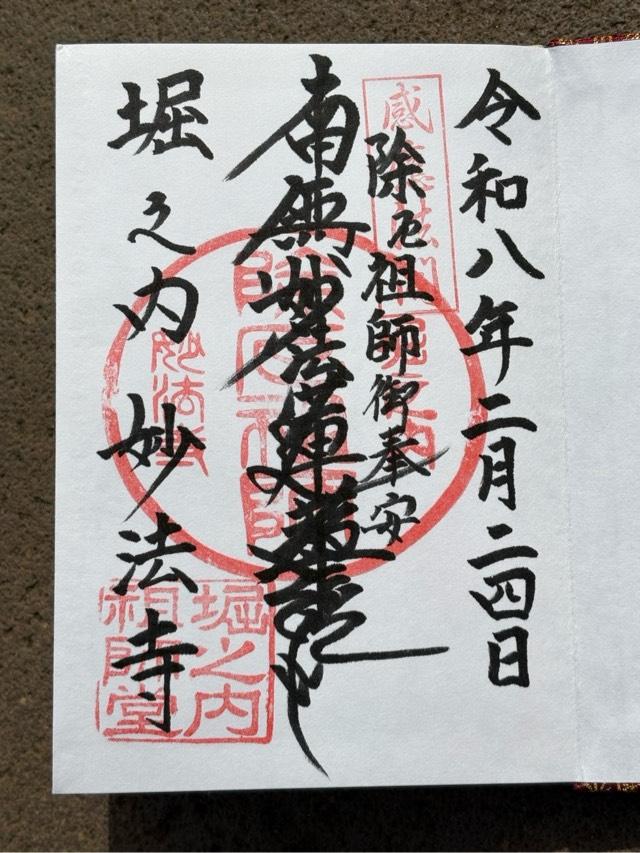 令和八年二月二四日
除厄祖師御奉安
南無妙法蓮華経
堀之内妙法寺
堀之内
妙法寺
堀之内
祖師堂